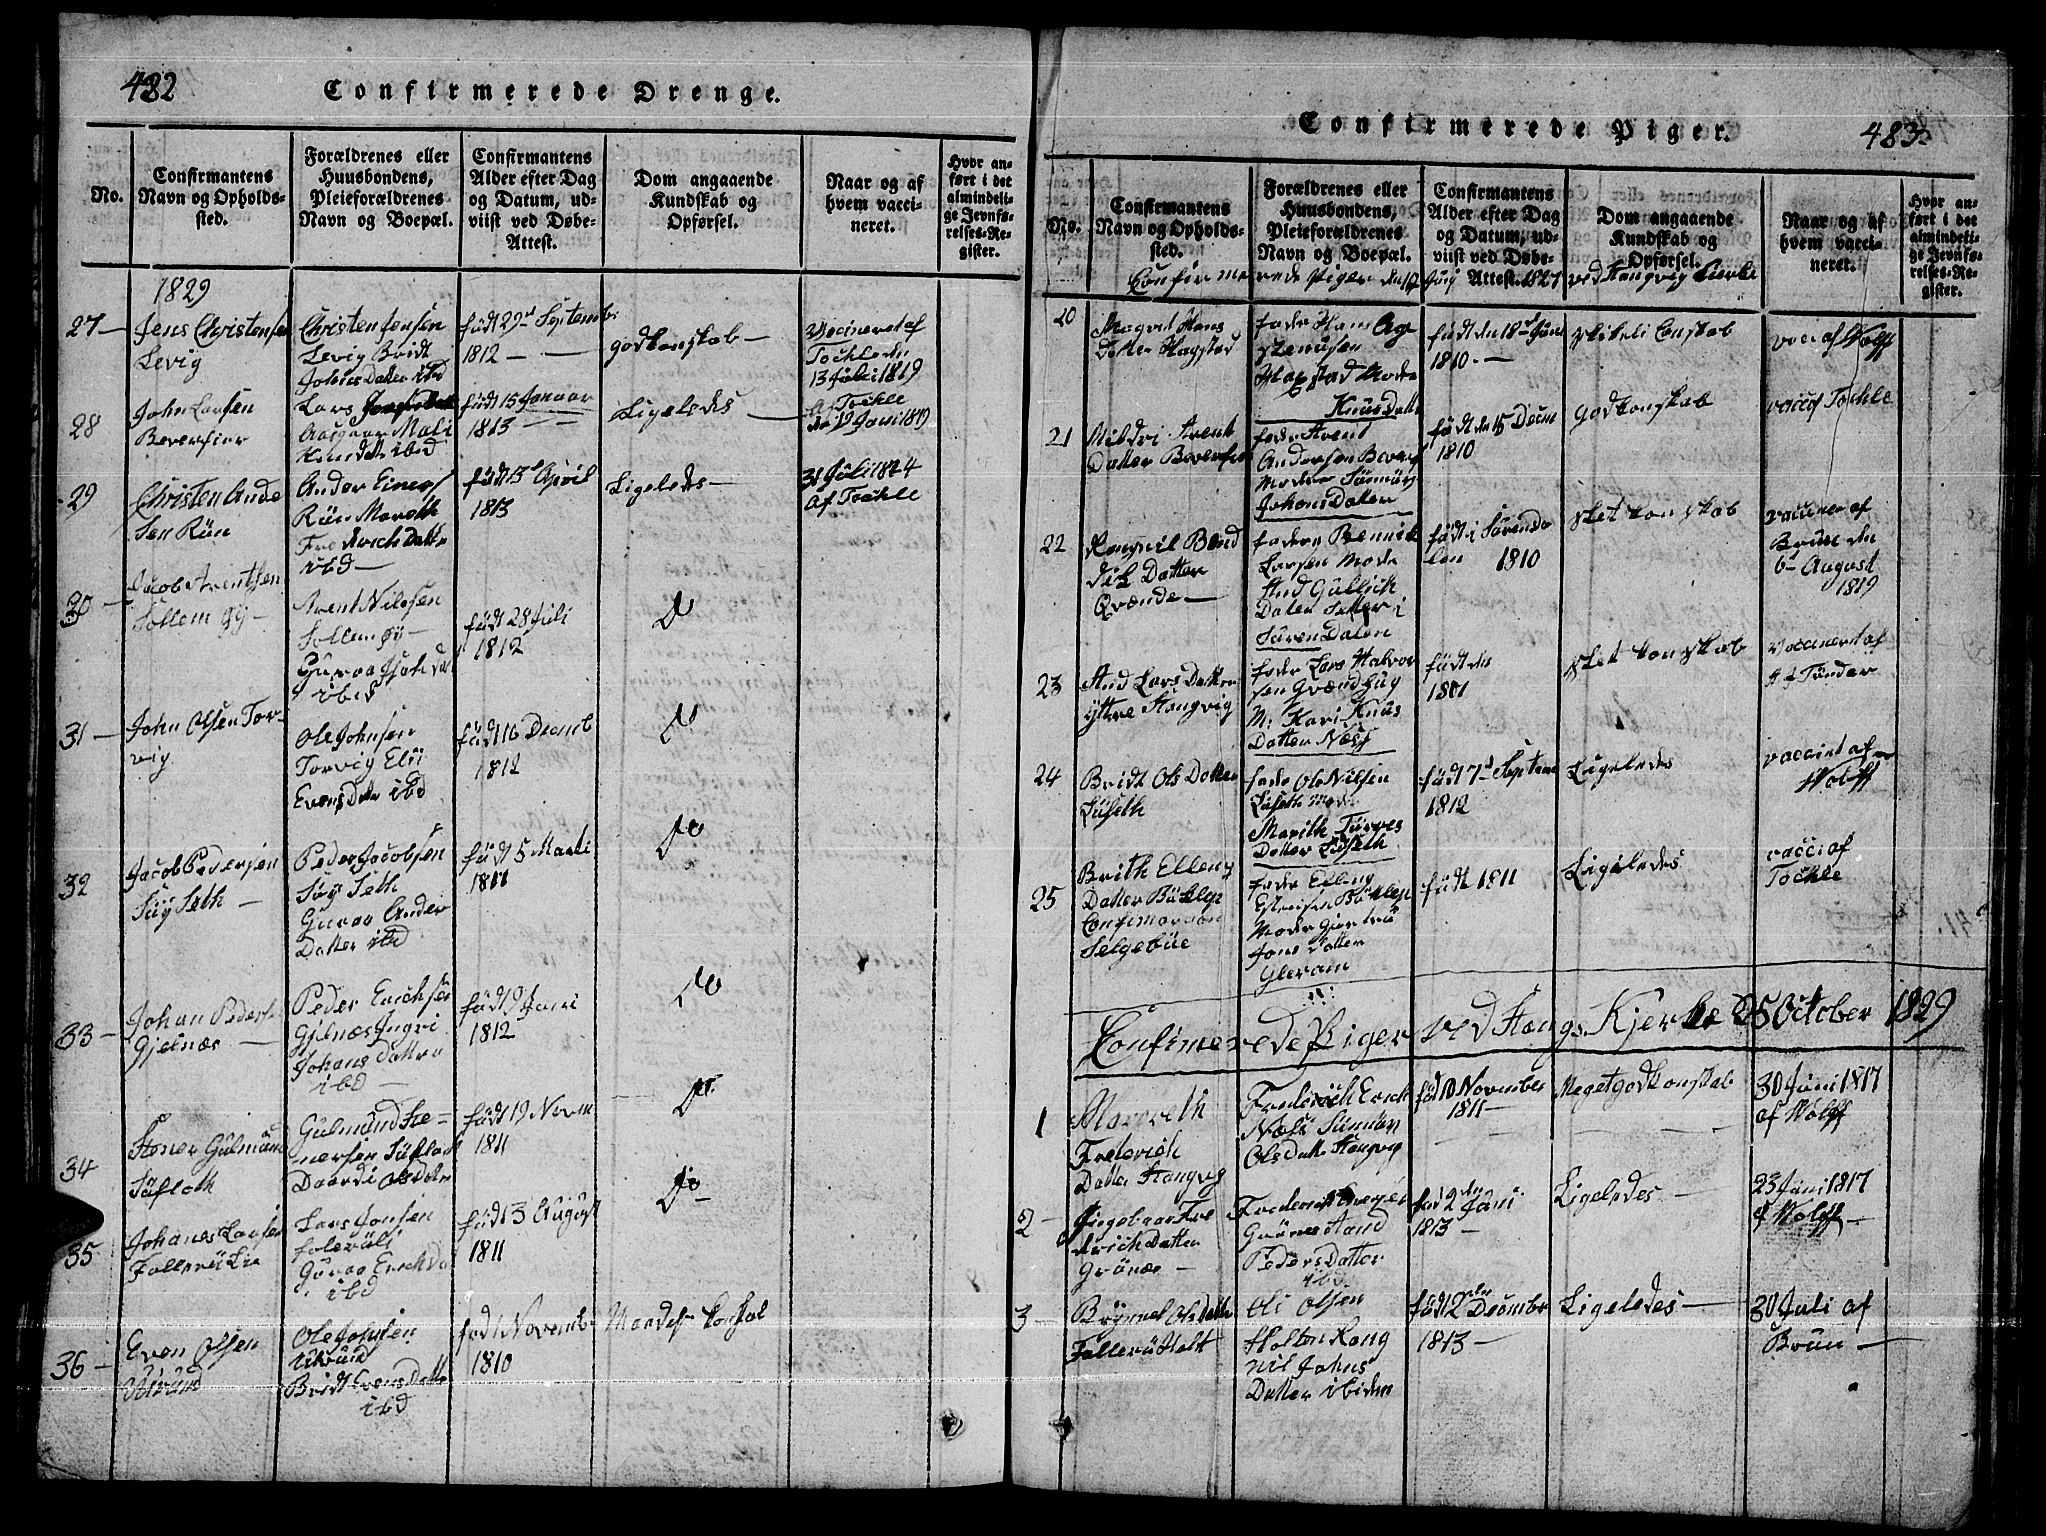 482
Confirmerede Drenge.
No.
Confirmantens
Navn og Opholds-
sted.
Forældrenes eller
Huusbondens,
Pleieforældrenes
Navn og Boepæl.
Confirmantens
Alder efter Dag
og Datum, ud-
viist ved Døbe-
Attest.
Dom angaaende
Kundskab og
Opførsel.
Naar og af
hvem vacci-
neret.
Hvor an-
ført i det
almindeli-
ge Jevnfø-
relses-Re-
gister.
1829
27
Jens Christensen
Levig
Christen Jensen
Levig Bridt
Johns Datter ibd
født 29 Septemb:
1812
godkonskab
Vaccineret af
Tochle dn
13 Juli 1819
28
John Larsen
Beverfior
Lars
Aasgaar Mali
Knuds dt ibd
født 15 Januar
1813
Ligeledes
Af Tochle
dn 19 Juni 1819
29
Christen Ande
Sen Rün
Ander Einers
Rün Mareth
Fredrich Datter
ibd
født 13 April
1813
Ligeledes
31 Juli 1824
Af Tochle
30
Jacob Arentsen
Sollem øy
Arent Nilssen
Sollemøy
Guroa
ibid
født 28 Juli
1812
Do
31
John Olsen Tor-
vig
Ole Johnsen
Torvig Elii
Evens Datter ibd
født 16 Decemb
1812
Do
32
Jacob Pedersen
Süy Seth
Peder Jacobsen
Süy Seth
Guroa Ander
Datter ibd
født 5 Marti
1811
Do
33
Johan Peders
Gjelnæs
Peder Erichsen
Gjelnæs Ingri
Johans Dattra
ibd
født 9 Juni
1812
Do
34
Stener Gulmund
Süfloth
Gulmund Ste-
nersen Süflot
Daardi Olsdatr
født 19 Novm
1811
Do
35
Johanes Larsen
Follerü Lie
Lars Jonsen
folerüli
Guroa Erich Da
ibd
født 3 August
1811
Do
36
Even Olsen
Ole Johnsen
Bridt Evens Datter
ibd
født 1 Novemb
1810
Maadel: konskab
Confirmerede Piger.
483
No.
Confirmantens
Navn og Opholds-
sted.
Forældrenes eller
Huusbondens,
Pleieforældrenes
Navn og Boepæl.
Confirmantens
Alder efter Dag
og Datum, ud-
viist ved Døbe-
Attest.
Dom angaaende
Kundskab og
Opførsel.
Naar og af
hvem vacci-
neret.
Hvor an-
ført i det
almindeli-
ge Jevnfø-
relses-Re-
gister.
Confirmerede Piger den 17 Juni 1827 ved Stangvig Kierke
20
Magred Hans
Datter Hagstad
fader Hans Og
stenusen
Hagstad Moder
Knus Datter
født den 18 Juni
1810
Skikeli Conskab
vacc af Wolff
21
Mildri Arent
Datter Beverfior
fader Arent
Andersen Beverf
Moder Sünnüv
Johons Datter
født dn 15 Decem
1810
Godkonskab
vacc af Tochle
22
Rangnil Bend
dick Datter
Qvænde
fader Bennick
Larsen Mode
And Gullick
Datter Setter i
Süren Dalen
født i Sørenda
len 1810
Slet konskab
vaccineret af
Brun dn
6 August
1819
23
And Lars Datter
yttre Stangvig
fader Lars Halvor
sen Grændhug
M: Kari Knus
Datter Næss
født dn
1811
slet konskab
vaccineret af
Af Tønder
24
Bridt Ols Datter
Lüseth
fader Ole Nilsen
Lüseth Moder
Marith Türres
Datter Lüseth
født 7 Septemb
1812
Ligeledes
vaccinet af
Wolff
25
Brith Elleng
Datter Bøklep
Confirmeraen
Selgebüe
fader Elleng
Bøklep
Moder Giertrü
Jons Datter
Gleram
født 1811
Ligeledes
vacci af
Tochle
Confimerede Piger ved Stangs Kjerke 25 October 1829
1
Mareth
Frederich
Datter Stangvig
Frederich Erich
Næss Sünnüv
Olsdatter Stangvig
født 10 November
1811
Meget god konskab
30 Juni 1817
af Wolff
2
Jngebaar Fre
drich Datter
Grønæs
Frederich
Grønæs And
Peders Datter
ibd
født 2 den Juni
1813
Ligeledes
23 Juni 1817
af Wolff
3
Brynnel Olsdatter
Follerü Holt
Oli Olsen
Holten Rang
nil Johns
Datter ibiden
født 2 den December
1813
Ligeledes
30 Juli af
Brün